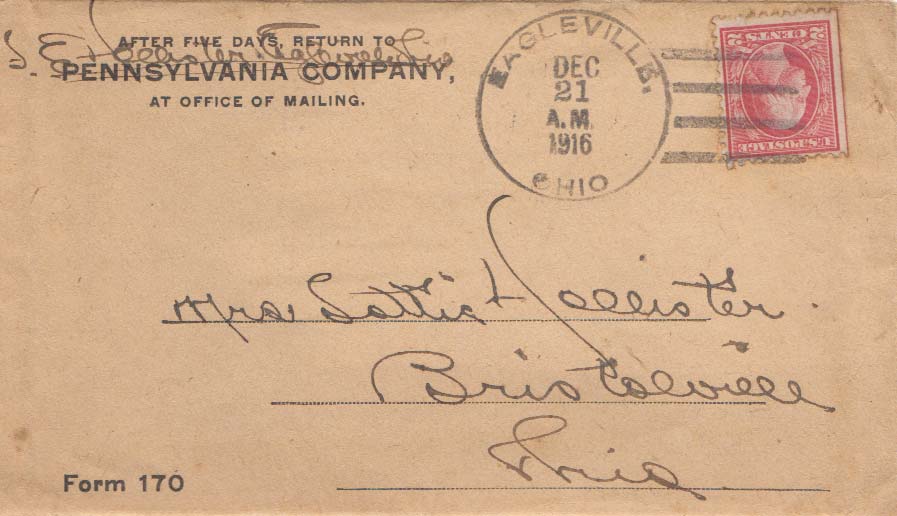 AFTER FIVE DAYS, RETURN TO
S. E. Hollister
PENNSYLVANIA COMPANY,
AT OFFICE OF MAILING.
EAGLEVILLE,
DEC
21
A.M.
1916
OHIO
2 CENTS 2
U.S. POSTAGE
Mrs Lottie Hollister
Bristolville
Ohio
Form 170